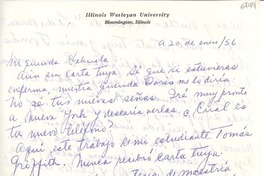 Illinois Wesleyan University
Bloomington, Illinois
A 20, de enero/56
Mi querida Gabriela
Aún sin carta tuya. Sé que si estuvieras
enferma, nuestra querida Doris me lo diría
No sé tus nuevas señas. Iré muy pronto
a Nueva York y desearía verlas. ¿Cuál es
tu nuevo teléfono?
Aquí este trabajo de mi estudiante Tomás
Griffith. Nunca recibió carta tuya.
tesis de maestría